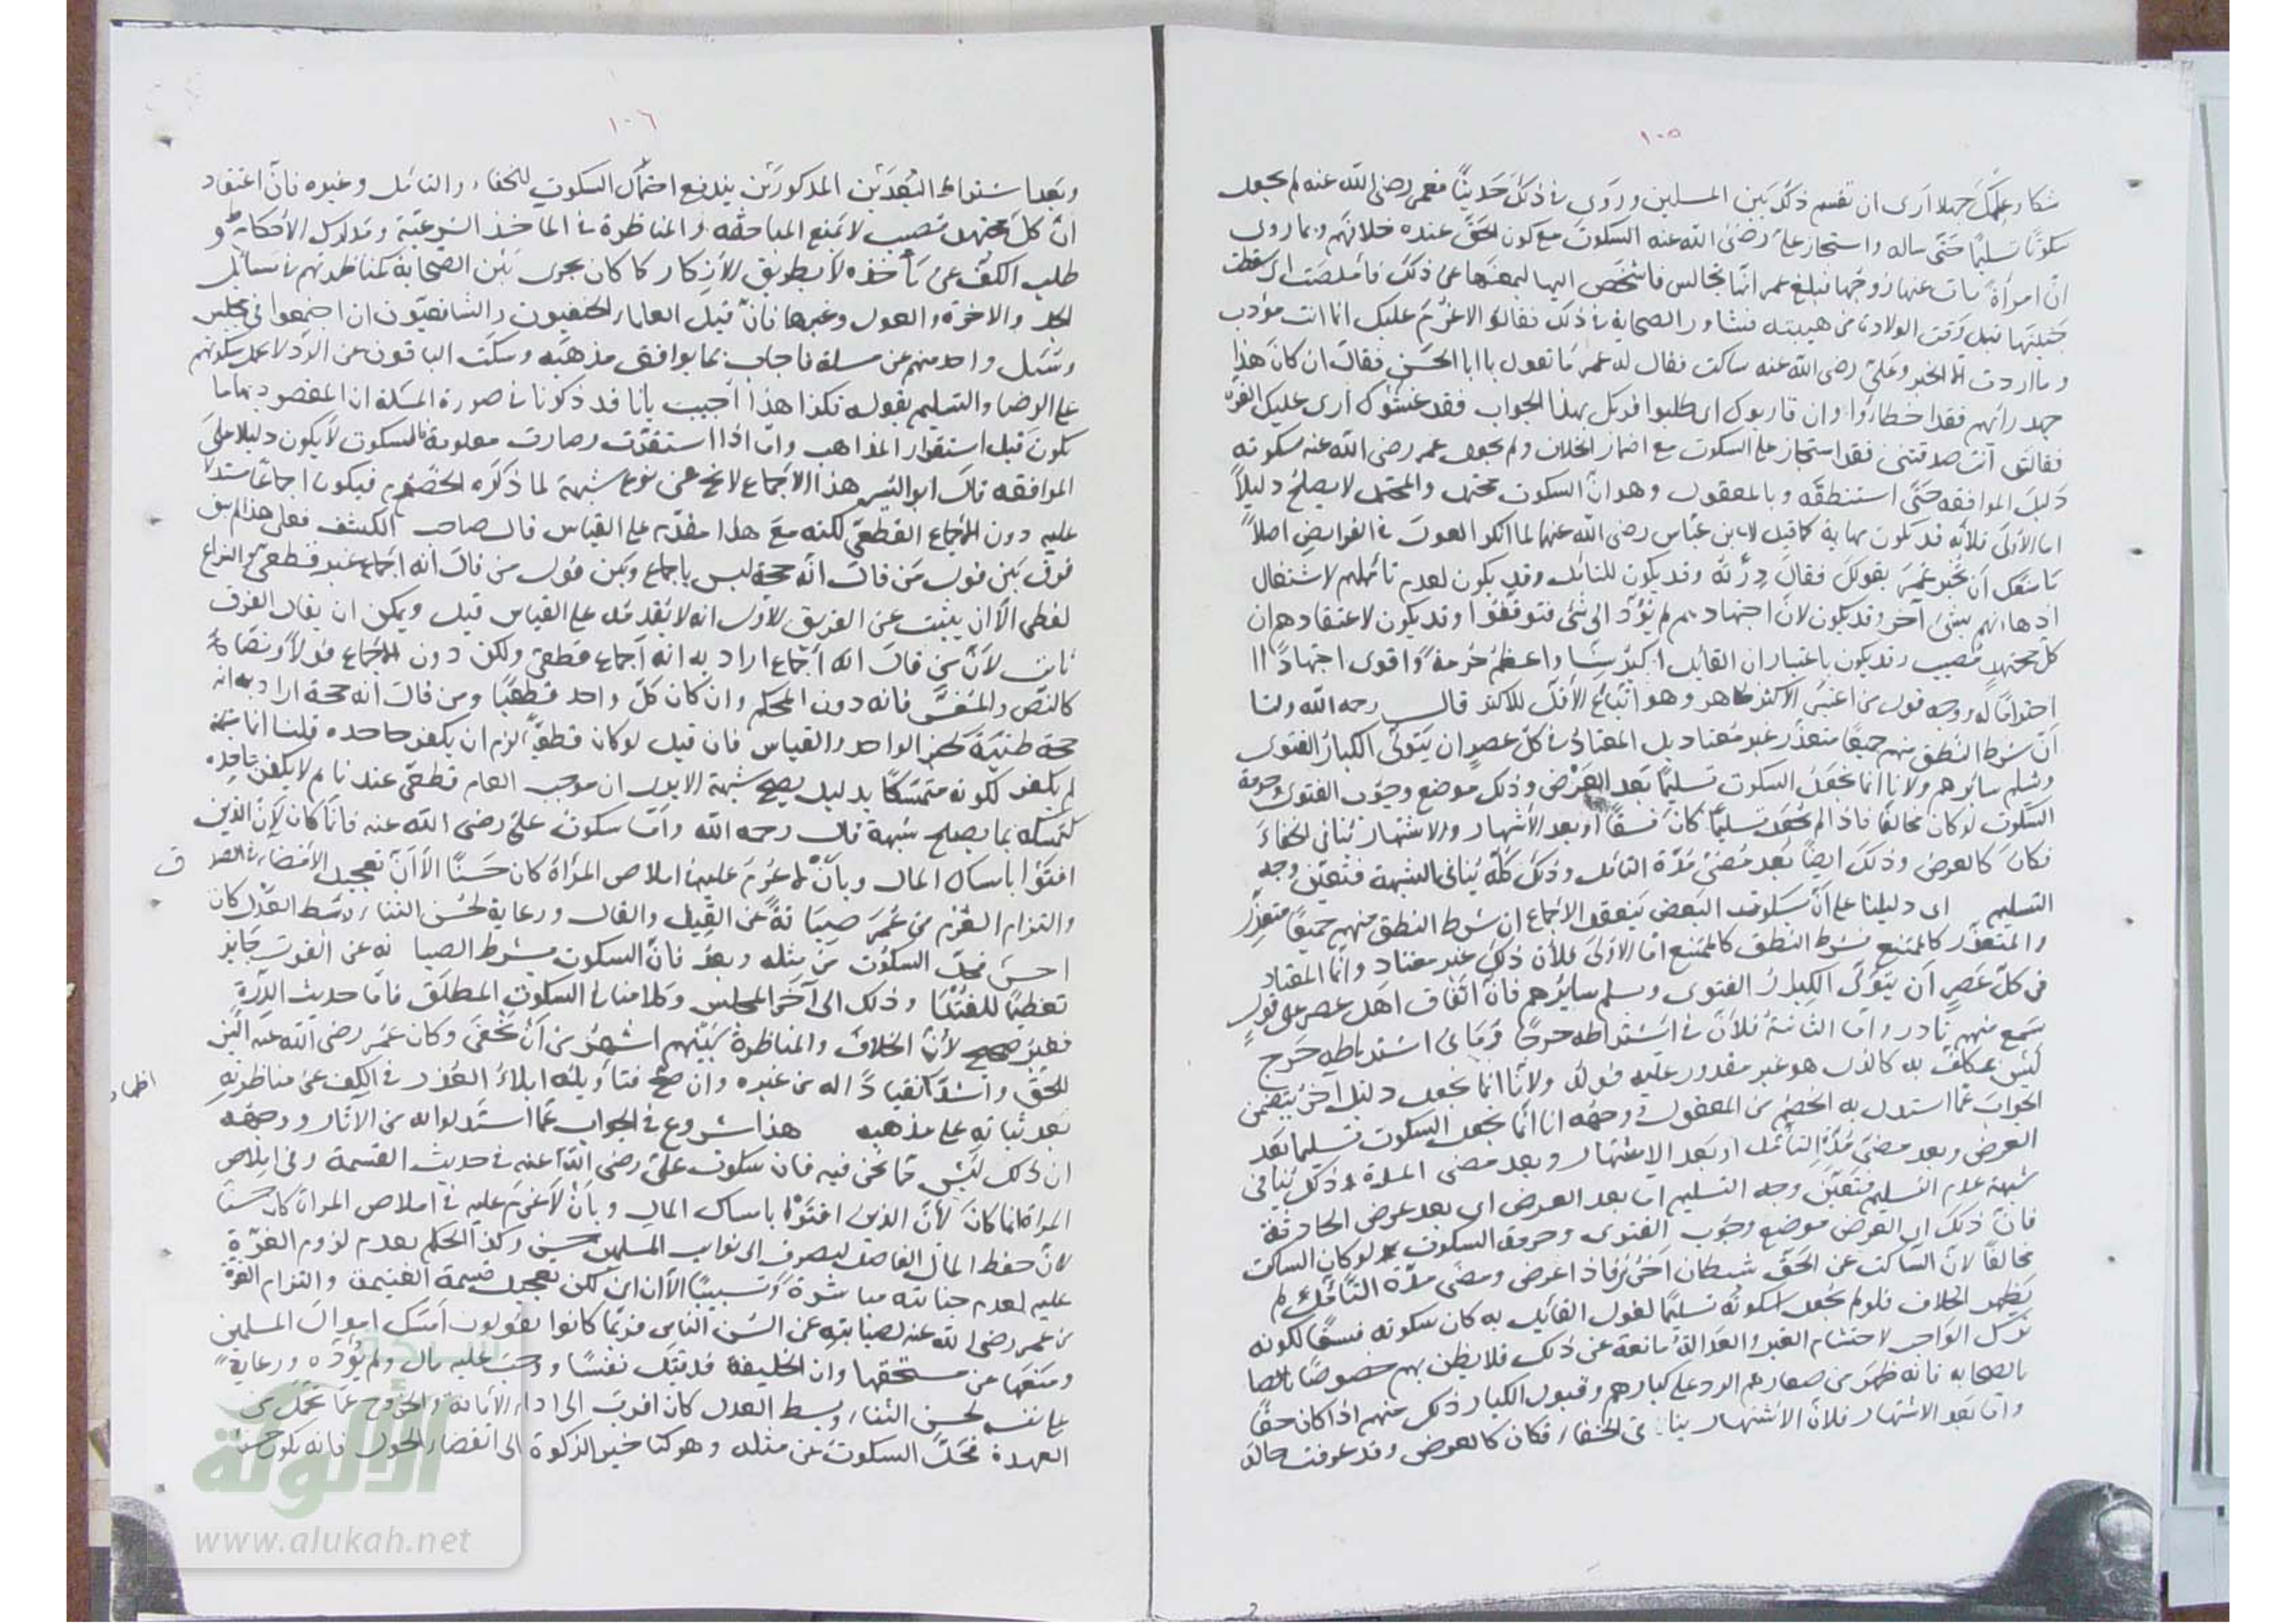 ١٠٥
شكا وعلمك جهلا ارى ان تقسم ذلك بين المسلمين وروى في ذلك حديثا فعمر رضى الله عنه لم يجعل
سكوته تسليما حتى ساله واستجاز علي رضى الله عنه السكوت مع كون الحق عنده خلافهم وبما روى
ان امرأة غاب عنها زوجها فبلغ عمر انها تجالس فاشخص اليها ليمنعها عن ذلك فاملصت اى اسقطت
جنينها قبل وقت الولادة من هيبته فشاور الصحابة في ذلك فقالوا لا غرم عليك انما انت مؤدب
وما اردت الا الخير وعلي رضى الله عنه ساكت فقال له عمر ما تقول يا ابا الحسن فقال ان كان هذا
جهد رايهم فقد اخطاؤا وان قاربوك اى طلبوا قربك بهذا الجواب فقد غشوك ارى عليك الغرة
فقال انت صدقتنى فقد استجاز علي السكوت مع اضمار الخلاف ولم يجعل عمر رضى الله عنه سكوته
دليل الموافقة حتى استنطقه وبالمعقول وهو ان السكوت محتمل والمحتمل لا يصلح دليلا
اما الاولى فلانه قد يكون مهابة كما قيل لابن عباس رضى الله عنهما لما انكر العول في الفرايض اصلا
ما منعك ان تخبر عمر بقولك فقال درته وقد يكون للتامل وقد يكون لعدم تاملهم لاشتغال
اذهانهم بشئ آخر وقد يكون لان اجتهادهم لم يؤد الى شئ فتوقفوا وقد يكون لاعتقادهم ان
كل مجتهد مصيب وقد يكون باعتبار ان القايل اكبر سنا واعظم حرمة واقوى اجتهادا
احتراما له ووجه قول من اعتبر الاكثر ظاهر وهو اتباع الاقل للاكثر قال رحمه الله ولنا
ان شرط النطق منهم جميعا متعذر غير معتاد بل المعتاد في كل عصر ان يتولى الكبار الفتوى
ويسلم سائرهم ولانا انما نجعل السكوت تسليما بعد العرض وذلك موضع وجوب الفتوى وحرمة
السكوت لو كان مخالفا فاذا لم يجعل تسليما كان فسقا او بعد الاشتهار والاشتهار ينافى الخفاء
فكان كالعرض وذلك ايضا بعد مضى مدة التامل وذلك كله ينافى الشبهة فتعين وجه
التسليم اى دليلنا على ان بسكوت البعض ينعقد الاجماع ان شرط النطق منهم جميعا متعذر
والمتعذر كالممتنع فشرط النطق كالممتنع اما الاولى فلان ذلك غير معتاد وانما المعتاد
فى كل عصر ان يتولى الكبار الفتوى ويسلم سايرهم فان اتفاق اهل عصر على قول
يسمع منهم نادر واما الثانية فلان في اشتراطه حرجا وما في اشتراطه حرج
ليس بمكلف به كالذى هو غير مقدور عليه قوله ولانا انما نجعل دليل آخر يتضمن
الجواب عما استدل به الخصم من المعقول ووجهه انا انما نجعل السكوت تسليما بعد
العرض وبعد مضى مدة التامل او بعد الاشتهار وبعد مضى المدة وذلك ينافى
شبهة عدم التسليم فتعين وجه التسليم اما بعد العرض اى بعد عرض الحادثة
فان ذلك اى العرض موضع وجوب الفتوى وحرمة السكوت لو كان الساكت
مخالفا لان الساكت عن الحق شيطان اخرس فاذا عرض ومضى مدة التامل ولم
يظهر الخلاف فلو لم يجعل سكوته تسليما لقول القايل به كان سكوته فسقا لكونه
ترك الواجب لاحتشام الغير والعدالة مانعة عن ذلك فلا يظن بهم خصوصا
بالصحابة فانه ظهر من صغارهم الرد على كبارهم وقبول الكبار ذلك منهم اذا كان حقا
واما بعد الاشتهار فلان الاشتهار ينافى الخفاء فكان كالعرض وقد عرفت حاله
١٠٦
وبعد اشتراط البعدين المذكورين يندفع احتمال السكوت للخفاء والتامل وغيره فان اعتقاد
ان كل مجتهد مصيب لا يمنع المباحثة والمناظرة في الماخذ الشرعية ومدارك الاحكام و
طلب الكشف عن ماخذه لا بطريق الانكار كما كان يجرى بين الصحابة كمناظرتهم في مسائل
الجد والاخوة والعول وغيرها فان قيل العلماء الحنفيون والشافعيون ان اجتمعوا في مجلس
وسئل واحد منهم عن مسئلة فاجاب بما يوافق مذهبه وسكت الباقون عن الرد لا يحمل سكوتهم
على الرضا والتسليم بقوله فكذا هذا اجيب بانا قد ذكرنا في صورة المسئلة ان المقصود بها ما
يكون قبل استقرار المذاهب واما اذا استقرت وصارت معلومة فالسكوت لا يكون دليلا على
الموافقة قال ابو اليسر هذا الاجماع لا يخ عن نوع شبهة لما ذكره الخصوم فيكون اجماعا مستدلا
عليه دون الاجماع القطعى لكنه مع هذا مقدم على القياس قال صاحب الكشف فعلى هذا لم يبق
فرق بين قول من قال انه حجة ليس باجماع وبين قول من قال انه اجماع غير قطعى والنزاع
لفظى الا ان يثبت عن الفريق الاول انه لا يقدمه على القياس قيل ويمكن ان يقال الفرق
ثابت لان من قال انه اجماع اراد به انه اجماع قطعى ولكن دون الاجماع قولا ونصا
كالنص والمفسر فانه دون المحكم وان كان كل واحد قطعيا ومن قال انه حجة اراد به انه
حجة ظنية كخبر الواحد والقياس فان قيل لو كان قطعيا لزم ان يكفر جاحده قلنا انما
لم يكفر لكونه متمسكا بدليل يصح شبهة الا يرى ان موجب العام قطعى عندنا ثم لا يكفر جاحده
لتمسكه بما يصلح شبهة قال رحمه الله واما سكوت علي رضى الله عنه فانما كان لان الذين
افتوا بامساك المال وبان لا غرم عليه في املاص المرأة كان حسنا الا ان تعجيل الامضاء في الصدقة
والتزام الغرم من عمر صيانة عن القيل والقال ورعاية لحسن الثناء وبسط العدل كان
احسن فحل السكوت عن مثله وبعد فان السكوت بشرط الصيانة عن الفوت جايز
تعظيما للفتيا وذلك الى آخر المجلس وكلامنا في السكوت المطلق فاما حديث الدرة
فغير صحيح لان الخلاف والمناظرة بينهم اشهر من ان تخفى وكان عمر رضى الله عنه الين
للحق واشد انقيادا له من غيره وان صح فتاويله ابلاء العذر في الكف عن مناظرته
بعد ثباته على مذهبه هذا شروع في الجواب عما استدلوا به من الاثار ووجهه
ان ذلك ليس مما نحن فيه فان سكوت علي رضى الله عنه في حديث القسمة وفى املاص
المرأة انما كان لان الذين افتوا بامساك المال وبان لا غرم عليه في املاص المرأة كان حسنا
لان حفظ المال الفاضل ليصرف الى نوايب المسلمين حسن وكذا الحكم بعدم لزوم الغرة
عليه لعدم جنايته مباشرة وتسبيبا الا ان تعجيل قسمة الغنيمة والتزام الغرة
من عمر رضى الله عنه لصيانته عن السن الناس فربما كانوا يقولون امسك اموال المسلمين
ومنعها عن مستحقها وان الخليفة قد قتل نفسا ووجب عليه مال ولم يؤده ورعاية
على نفسه لحسن الثناء وبسط العدل كان اقرب الى اداء الامانة والخروج عما تحمل من
العهدة فحل السكوت عن مثله وهو كتاخير الزكوة الى انقضاء الحول فانه يكون حسنا
الألوكة
www.alukah.net